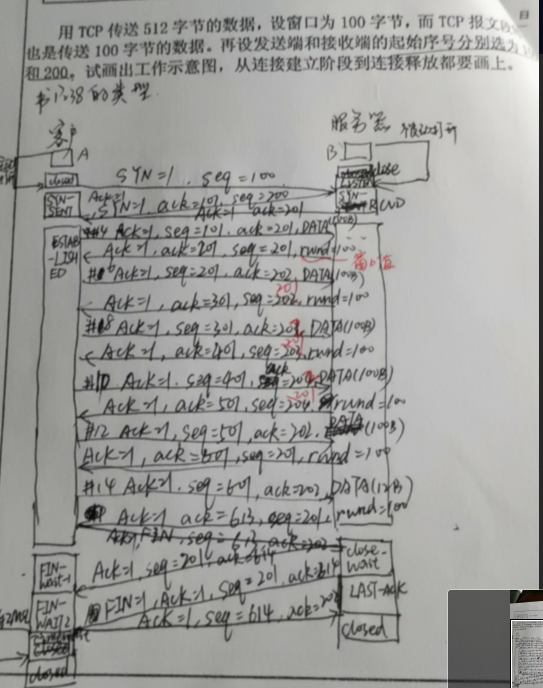 用TCP传送512字节的数据，设窗口为100字节，而TCP报文段
也是传送100字节的数据。再设发送端和接收端的起始序号分别选为
和200。试画出工作示意图，从连接建立阶段到连接释放都要画上。
的类型
客户
服务器 被动打开
A
B
SYN=1. seq=100
closed
close
Ack=1
SYN=1, ack=101, seq=200
SYN-
SENT
SYN-
RCVD
Ack=1 ack=201
#4 Ack=1, seq=101. ack=201, DATA(100B)
ESTAB
-LISH
ED
Ack=1, ack=201, seq=201, rwnd=100
窗口值
Ack=1, seq=201, ack=202, DATA(100B)
201
Ack=1, ack=301, seq=202, rwnd=100
#8 Ack=1, seq=301, ack=202, DATA(100B)
201
Ack=1, ack=401, seq=203, rwnd=100
#10 Ack=1. seq=401, ack=202, DATA(100B)
201
Ack=1, ack=501, seq=204, rwnd=100
#12 Ack=1, seq=501, ack=202. DATA(100B)
Ack=1, ack=601, seq=201, rwnd=100
#14 Ack=1. seq=601, ack=202, DATA(12B)
Ack=1, ack=613, seq=201, rwnd=100
Ack=1, FIN, seq=613, ack=202
FIN-
wait-1
close-
wait
Ack=1, seq=201, ack=614
FIN-
WAIT2
FIN=1, Ack=1, seq=201, ack=614
LAST-ACK
Ack=1, seq=614, ack=202
closed
closed